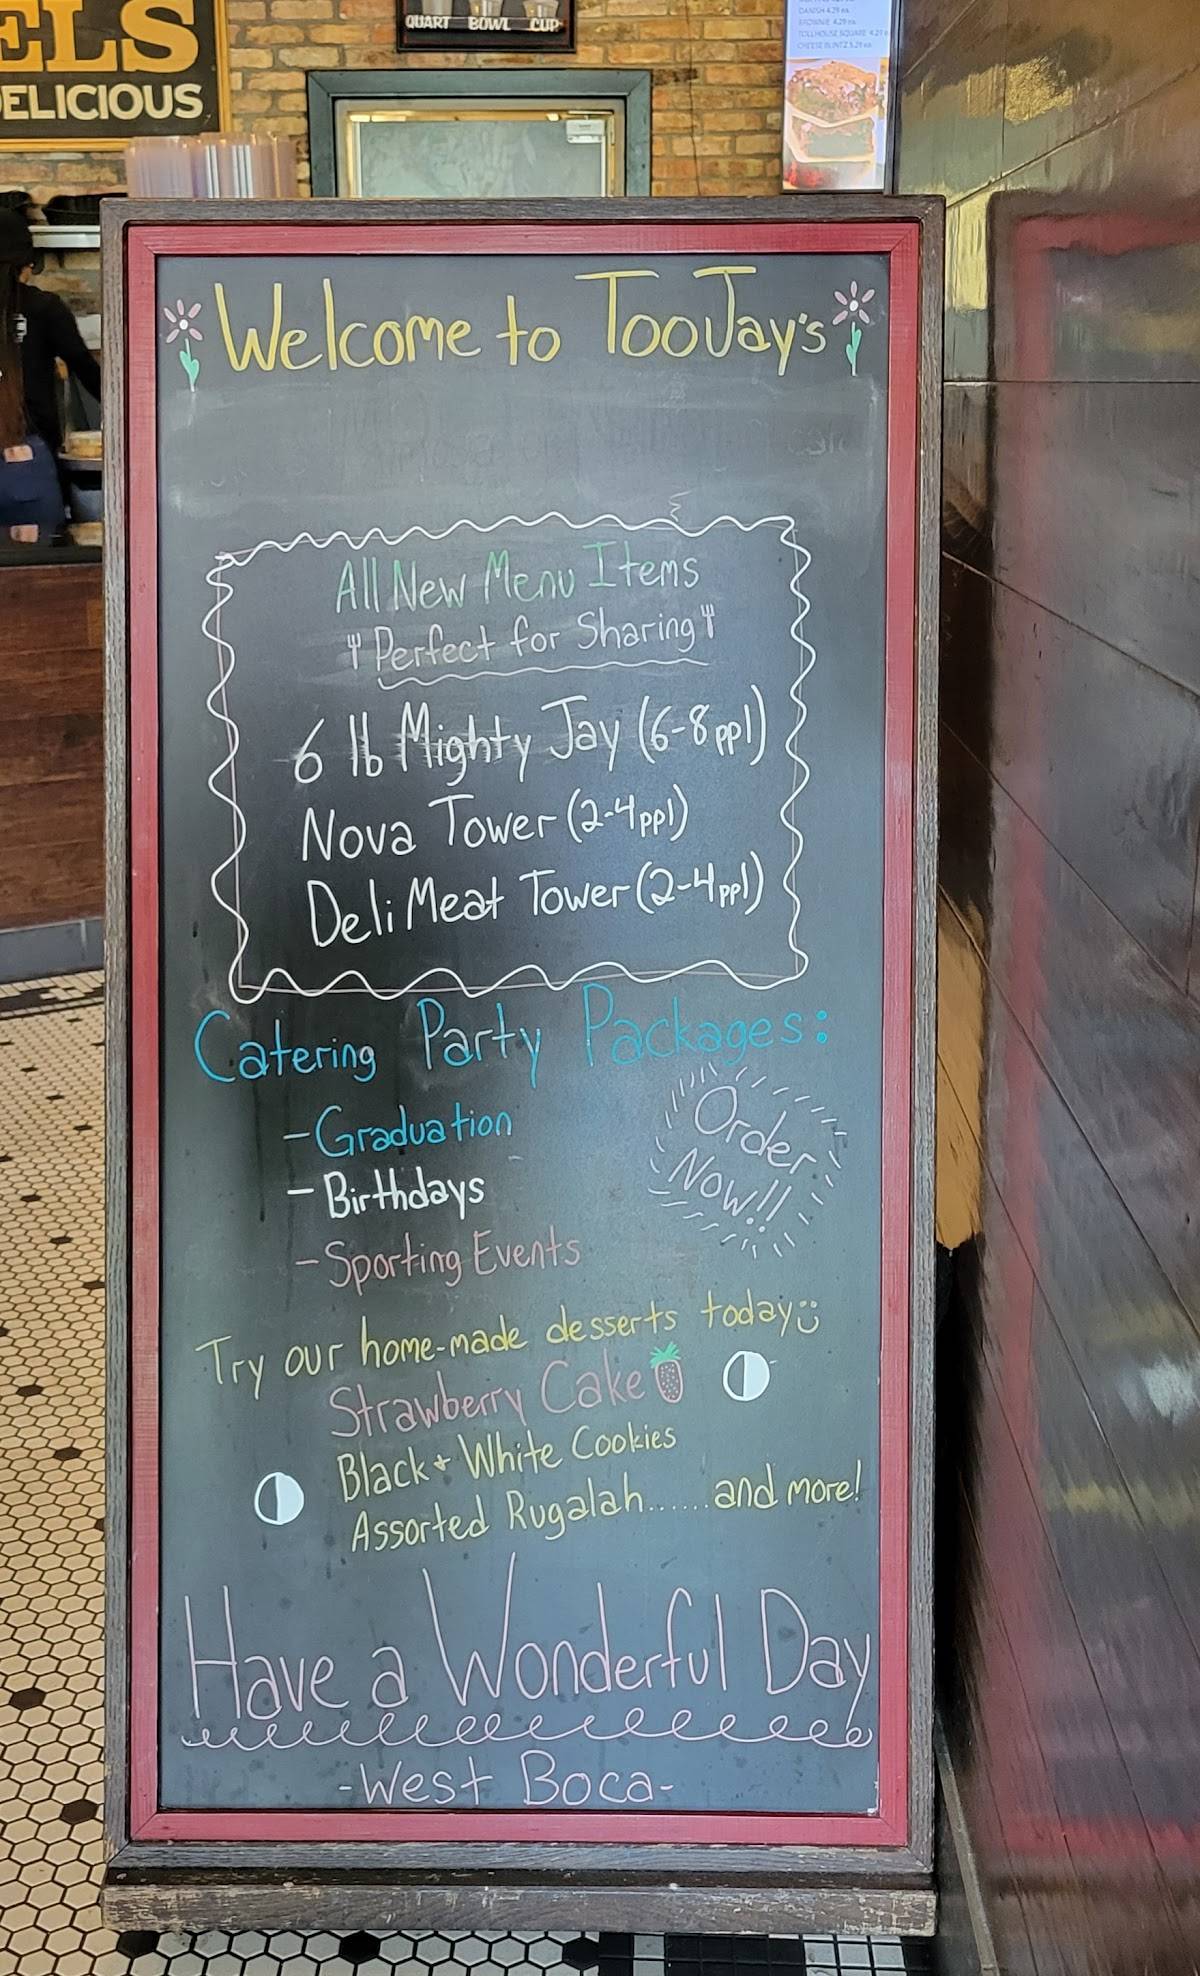 ELS
DELICIOUS
QUART BOWL CUP
DANISH 4.29 ea
BROWNIE 4.29 ea
TOLLHOUSE SQUARE 4.29 e
CHEESE BLINTZ 5.29 ea
Welcome to TooJay's
All New Menu Items
Perfect for Sharing
6 lb Mighty Jay (6-8 ppl)
Nova Tower (2-4 ppl)
Deli Meat Tower (2-4 ppl)
Catering Party Packages:
- Graduation
- Birthdays
- Sporting Events
Order
Now!!
Try our home-made desserts today
Strawberry Cake
Black + White Cookies
Assorted Rugalah......and more!
Have a Wonderful Day
-West Boca-